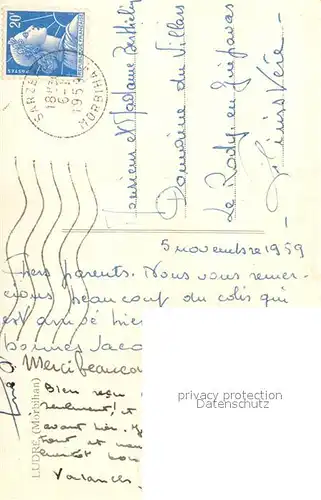 20F
POSTES
SARZE
18H
6-11
1959
MORBIHAN
Monsieur et Madame Berthily
Domaine du Villars
Le Rody en Guipavas
Finistère
5 novembre 1959
Chers parents. Nous vous remer-
cions beaucoup du colis qui
est arrivé hier
bonnes
Merci beaucou
Bien reçu
seulement! et
avant hier.
Tout et nous
bientôt bon
Vacances
LUDRÉ (Morbihan)
privacy protection
Datenschutz